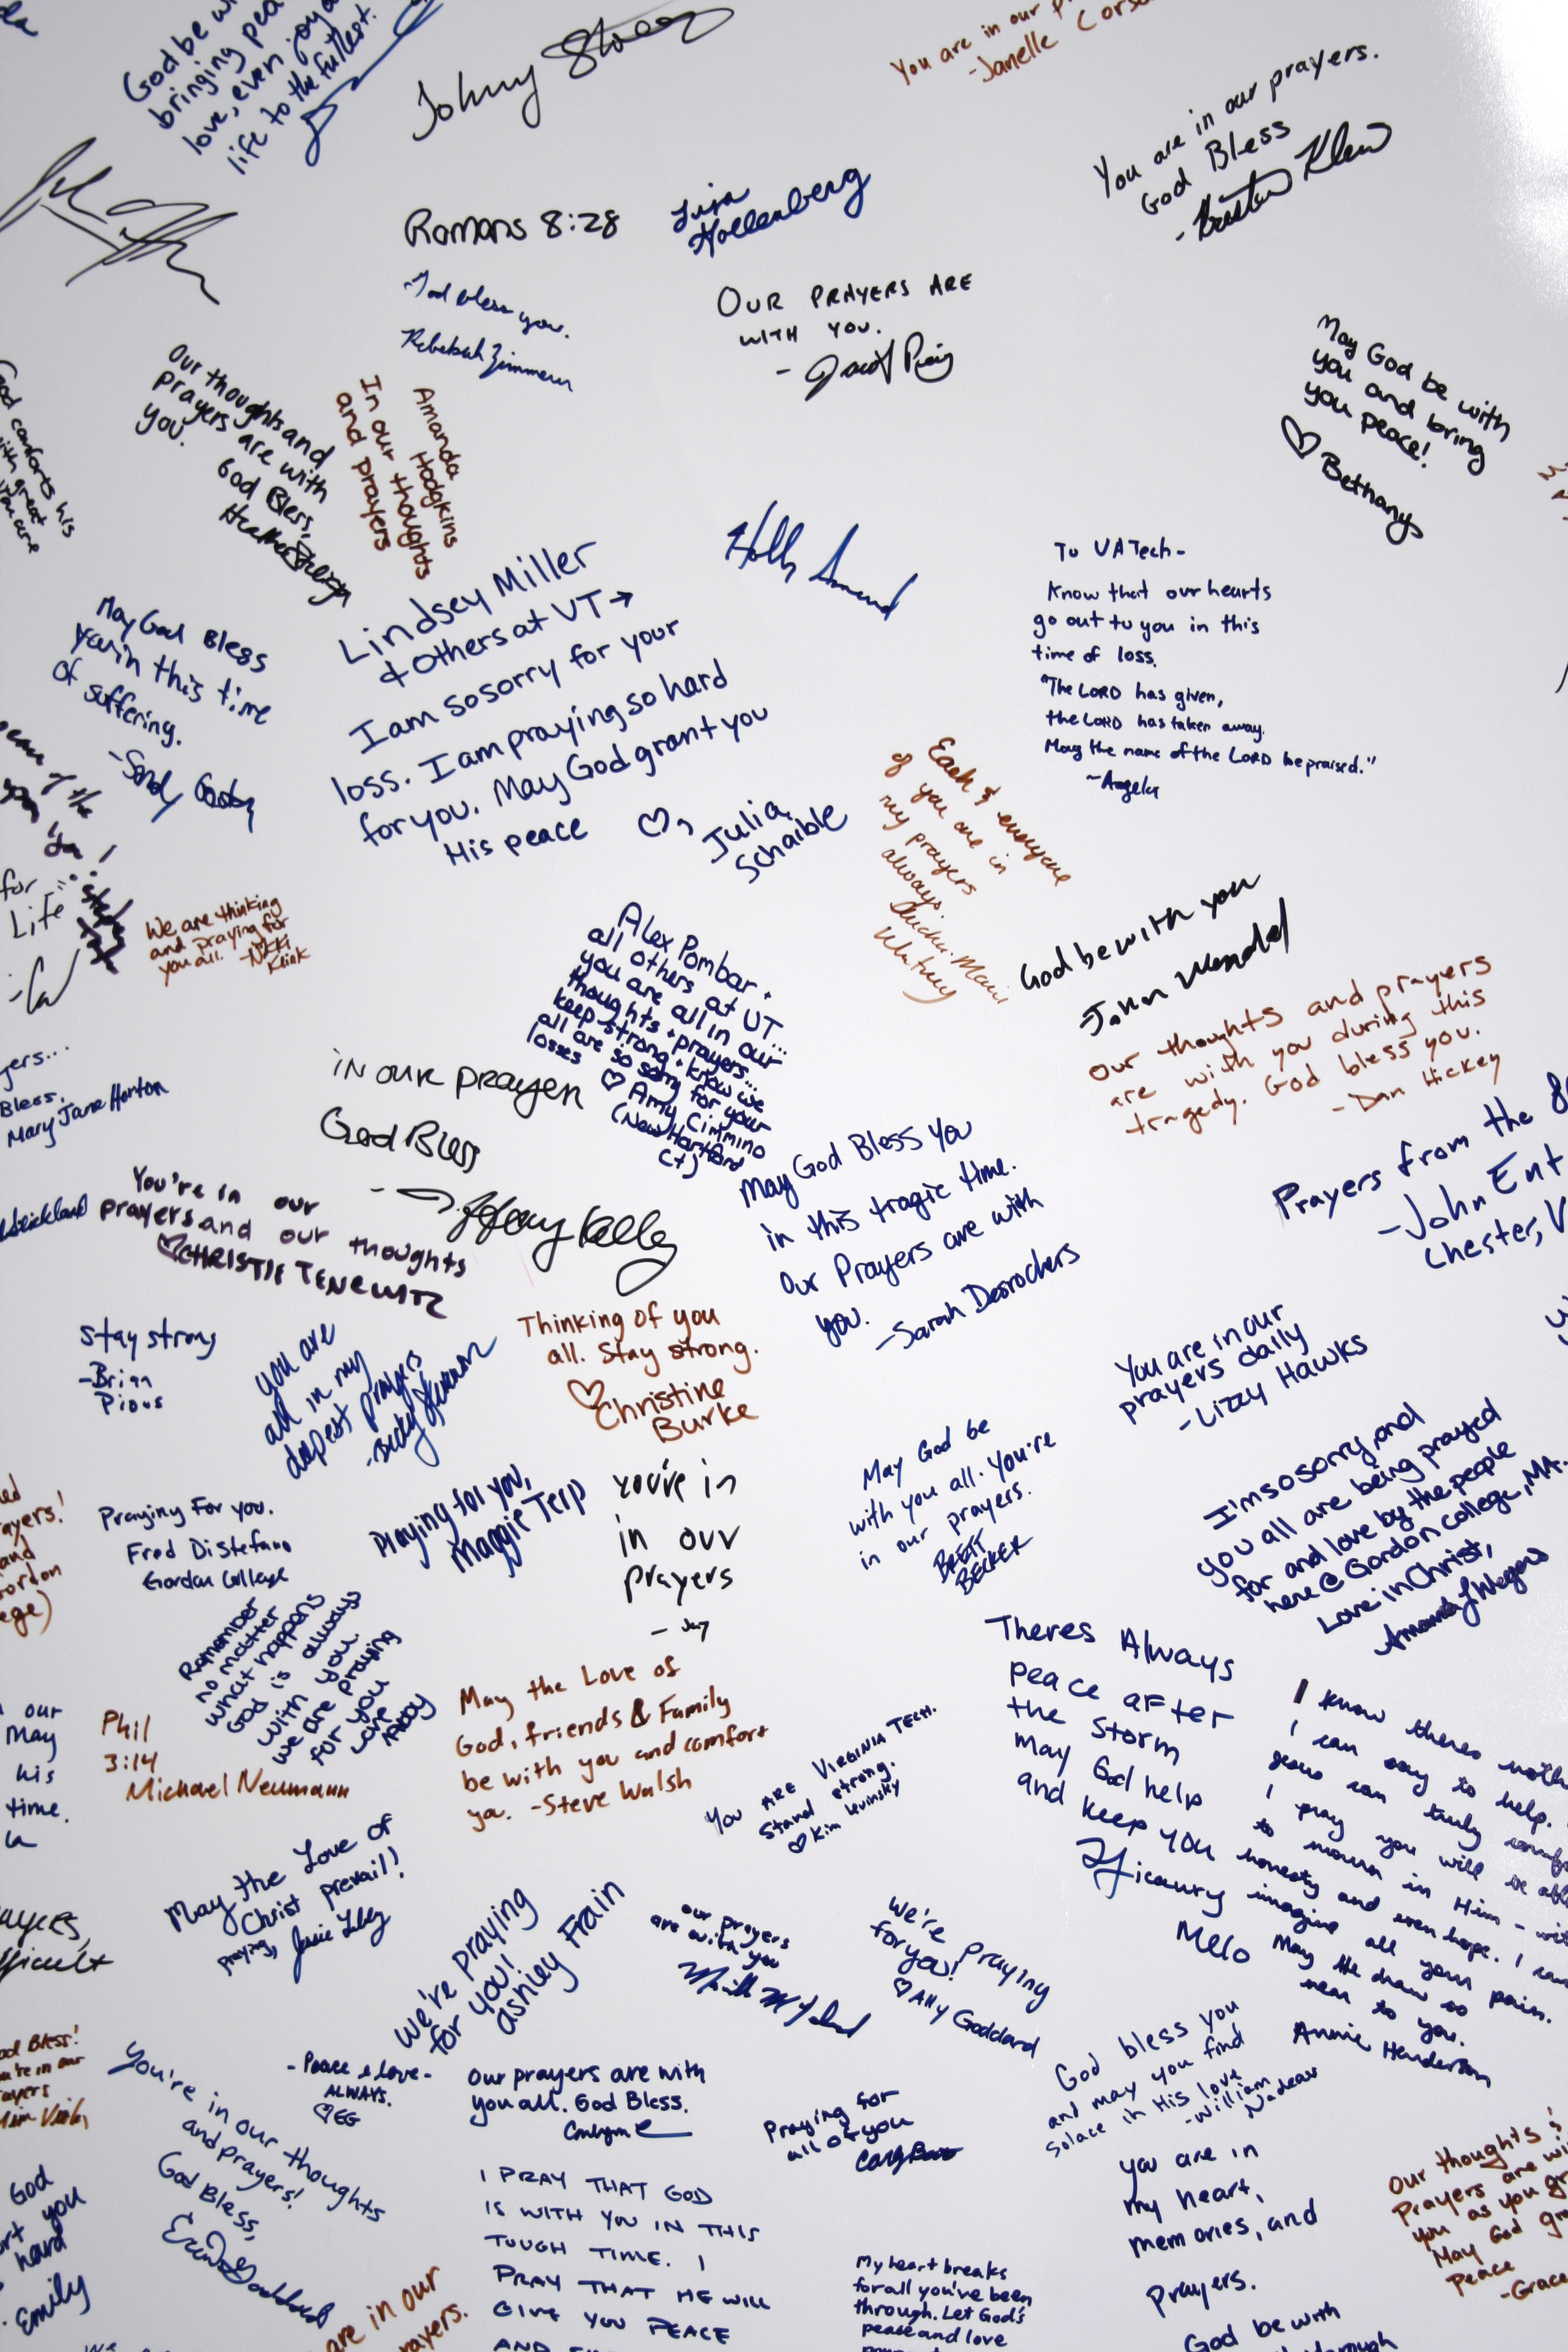 God be wi
bringing pea
love, even joy a
life to the fullest.
Johnny
You are in our p
-Janelle Corso
You are in our prayers.
God Bless
Romans 8:28
Lisa
Hollenberg
God bless you.
Rebekah Zimmerman
OUR PRAYERS ARE
WITH YOU.
May God be with
you and bring
you peace!
♡ Bethany
God comforts his
with great
Our thoughts and
prayers are with
you.
God Bless,
Heather
Amanda
Hodgkins
In our thoughts
and prayers
Holly
To VA Tech-
Know that our hearts
go out to you in this
time of loss.
"The LORD has given,
the LORD has taken away.
May the name of the LORD be praised."
~Angela
Lindsey Miller
+ Others at VT →
I am so sorry for your
loss. I am praying so hard
for you. May God grant you
His peace
♡, Julia
Schaible
May God Bless
you in this time
of suffering.
-Sandy
for
Life
We are thinking
and praying for
you all. -Nikki
Klink
Each & everyone
of you are in
my prayers
always.
Whitney
Alex Pombar +
all others at VT...
you are all in our
thoughts + prayers...
keep strong + know we
all are so sorry for your
losses ♡ Amy Cimmino
(New Hartford
CT)
God be with you
-John Mendel
Our thoughts and prayers
are with you during this
tragedy. God bless you.
-Dan Hickey
yers...
Bless,
Mary Jane Horton
in our prayer
God Bless
Kelley
You're in our
prayers and our thoughts
♡CHRISTIE TENEWITZ
May God Bless You
in this tragic time.
Our Prayers are with
you.
-Sarah Desrochers
Prayers from the
-John Ent
Chester, V
Stay strong
-Brian
Pious
you are
all in my
deepest prayers
-Becky
Thinking of you
all. Stay strong.
♡Christine
Burke
You are in our
prayers daily
-Lizzy Hawks
May God be
with you all. You're
in our prayers.
BRETT
BECKER
I'm so sorry, and
you all are being prayed
for and love by the people
here @ Gordon College, MA.
Love in Christ,
ayers!
and
ege)
Praying For you.
Fred Distefano
Gordon College
Praying for you,
Maggie Terp
You're in
in our
prayers
- Jay
Remember
no matter
what happens
God is always
with you.
we are praying
for you
Love
Abby
our
May
his
time.
Phil
3:14
Michael Neumann
May the Love of
God, friends & Family
be with you and comfort
you. -Steve Walsh
YOU ARE VIRGINIA TECH.
Stand strong.
♡ Kim Levinsky
Theres Always
peace after
the storm
may God help
and keep you
Melo
I know theres noth
I can say to help.
Jesus can truly comf
I pray you will be abl
to mourn in Him - wit
honesty and even hope. I can
imagine all your pain.
May He draw so
near to you.
Annie Henderson
May the Love of
Christ prevail!
Praying,
ayers,
fficult
We're praying
for you!
Ashley Frain
our prayers
are with you
We're praying
for you!
♡ Ally Goddard
God bless you
and may you find
solace in His love
-William
Nadeau
od Bless!
u're in our
rayers
-Peace & love-
ALWAYS.
♡EG
Our prayers are with
you all. God Bless.
Praying for
all of you
You're in our thoughts
and prayers!
God Bless,
Erin Goddard
God
rt you
hard
Emily
I PRAY THAT GOD
IS WITH YOU IN THIS
TOUGH TIME. I
PRAY THAT HE WILL
GIVE YOU PEACE
you are in
my heart,
memories, and
prayers.
Our thoughts &
Prayers are wi
you as you gr
May God gr
Peace
-Grace
My heart breaks
for all you've been
through. Let God's
peace and love
are in our
rayers.
God be with